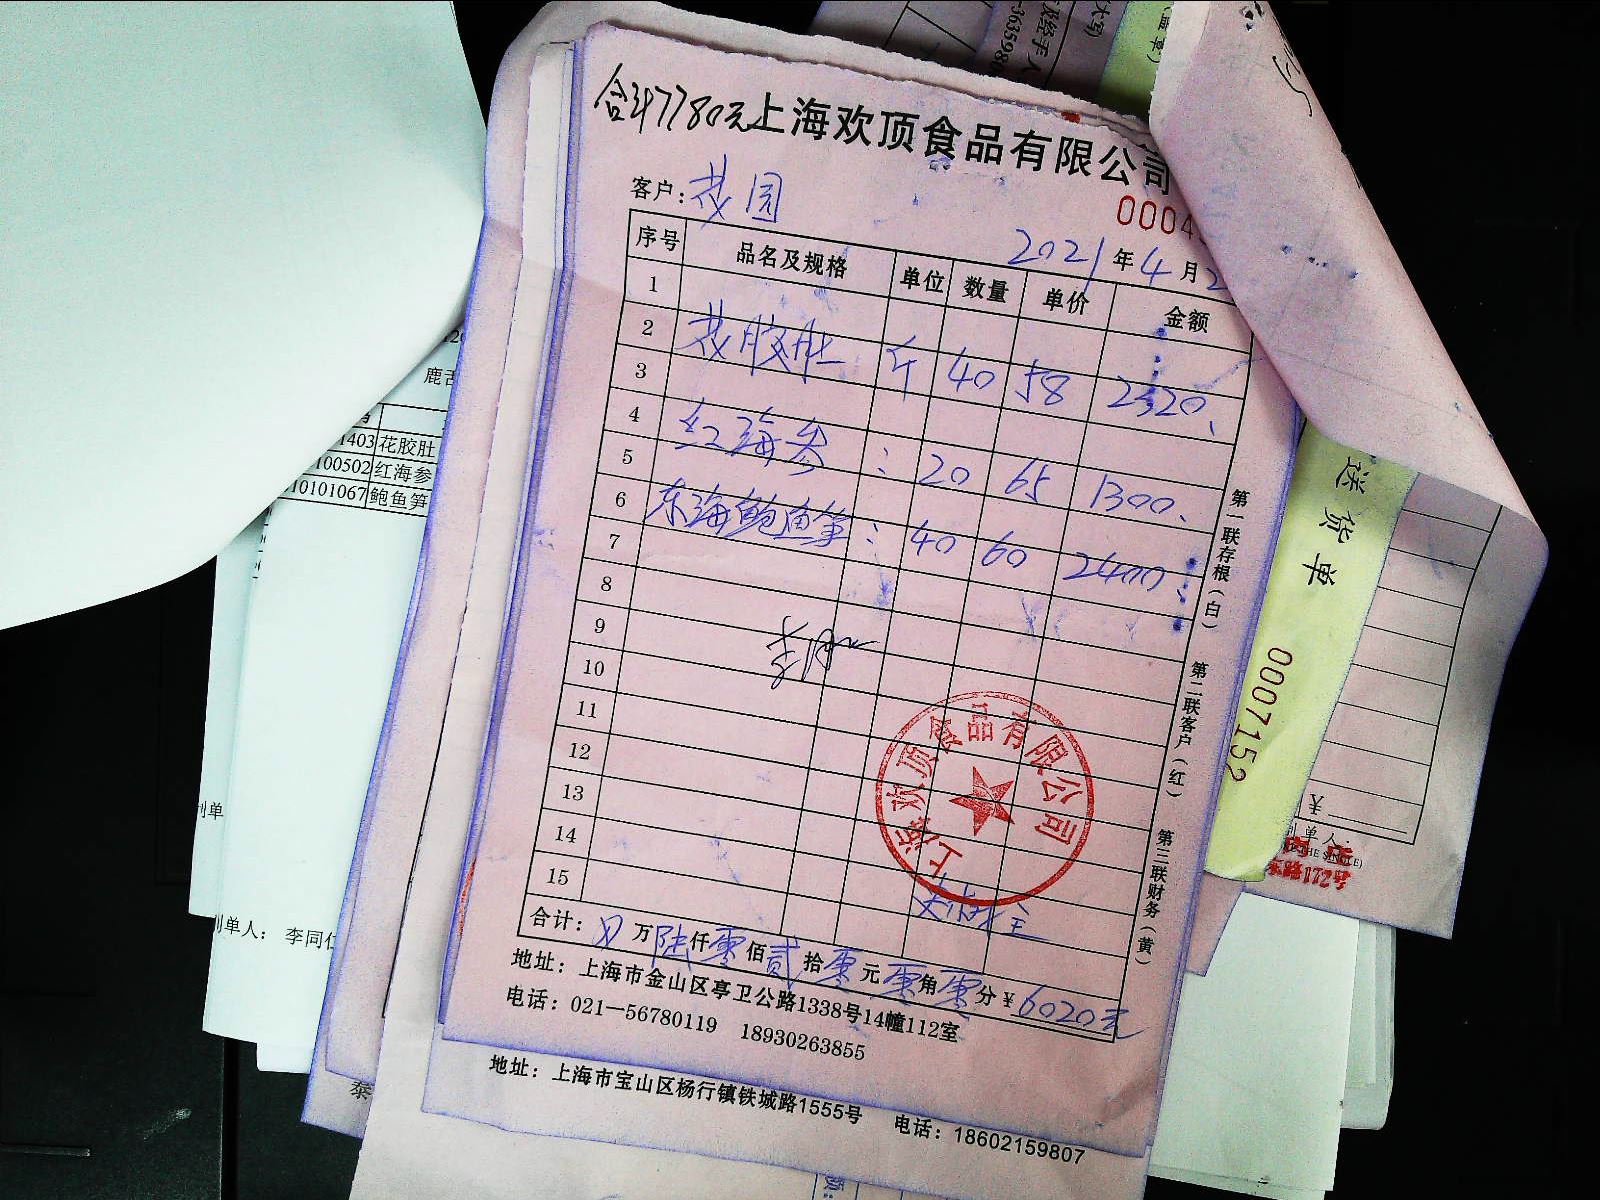 合计7780元
上海欢顶食品有限公司
客户：茂园
0004
2021年4月2
序号 品名及规格 单位 数量 单价 金额
1
2 花胶肚 斤 40 58 2320
3
4 红海参 : 20 65 1300
5
6 东海鲍鱼笋 : 40 60 2400
7
8
9
10
11
12
13
14
15
上海欢顶食品有限公司
合计：万陆仟零佰贰拾零元零角零分￥6020元
地址：上海市金山区亭卫公路1338号14幢112室
电话：021—56780119 18930263855
第一联存根（白） 第二联客户（红） 第三联财务（黄）
地址：上海市宝山区杨行镇铁城路1555号 电话：18602159807
1403 花胶肚
100502 红海参
10101067 鲍鱼笋
制单
制单人：李同仁
送货单
0007152
￥
制单人：
172号
大写)